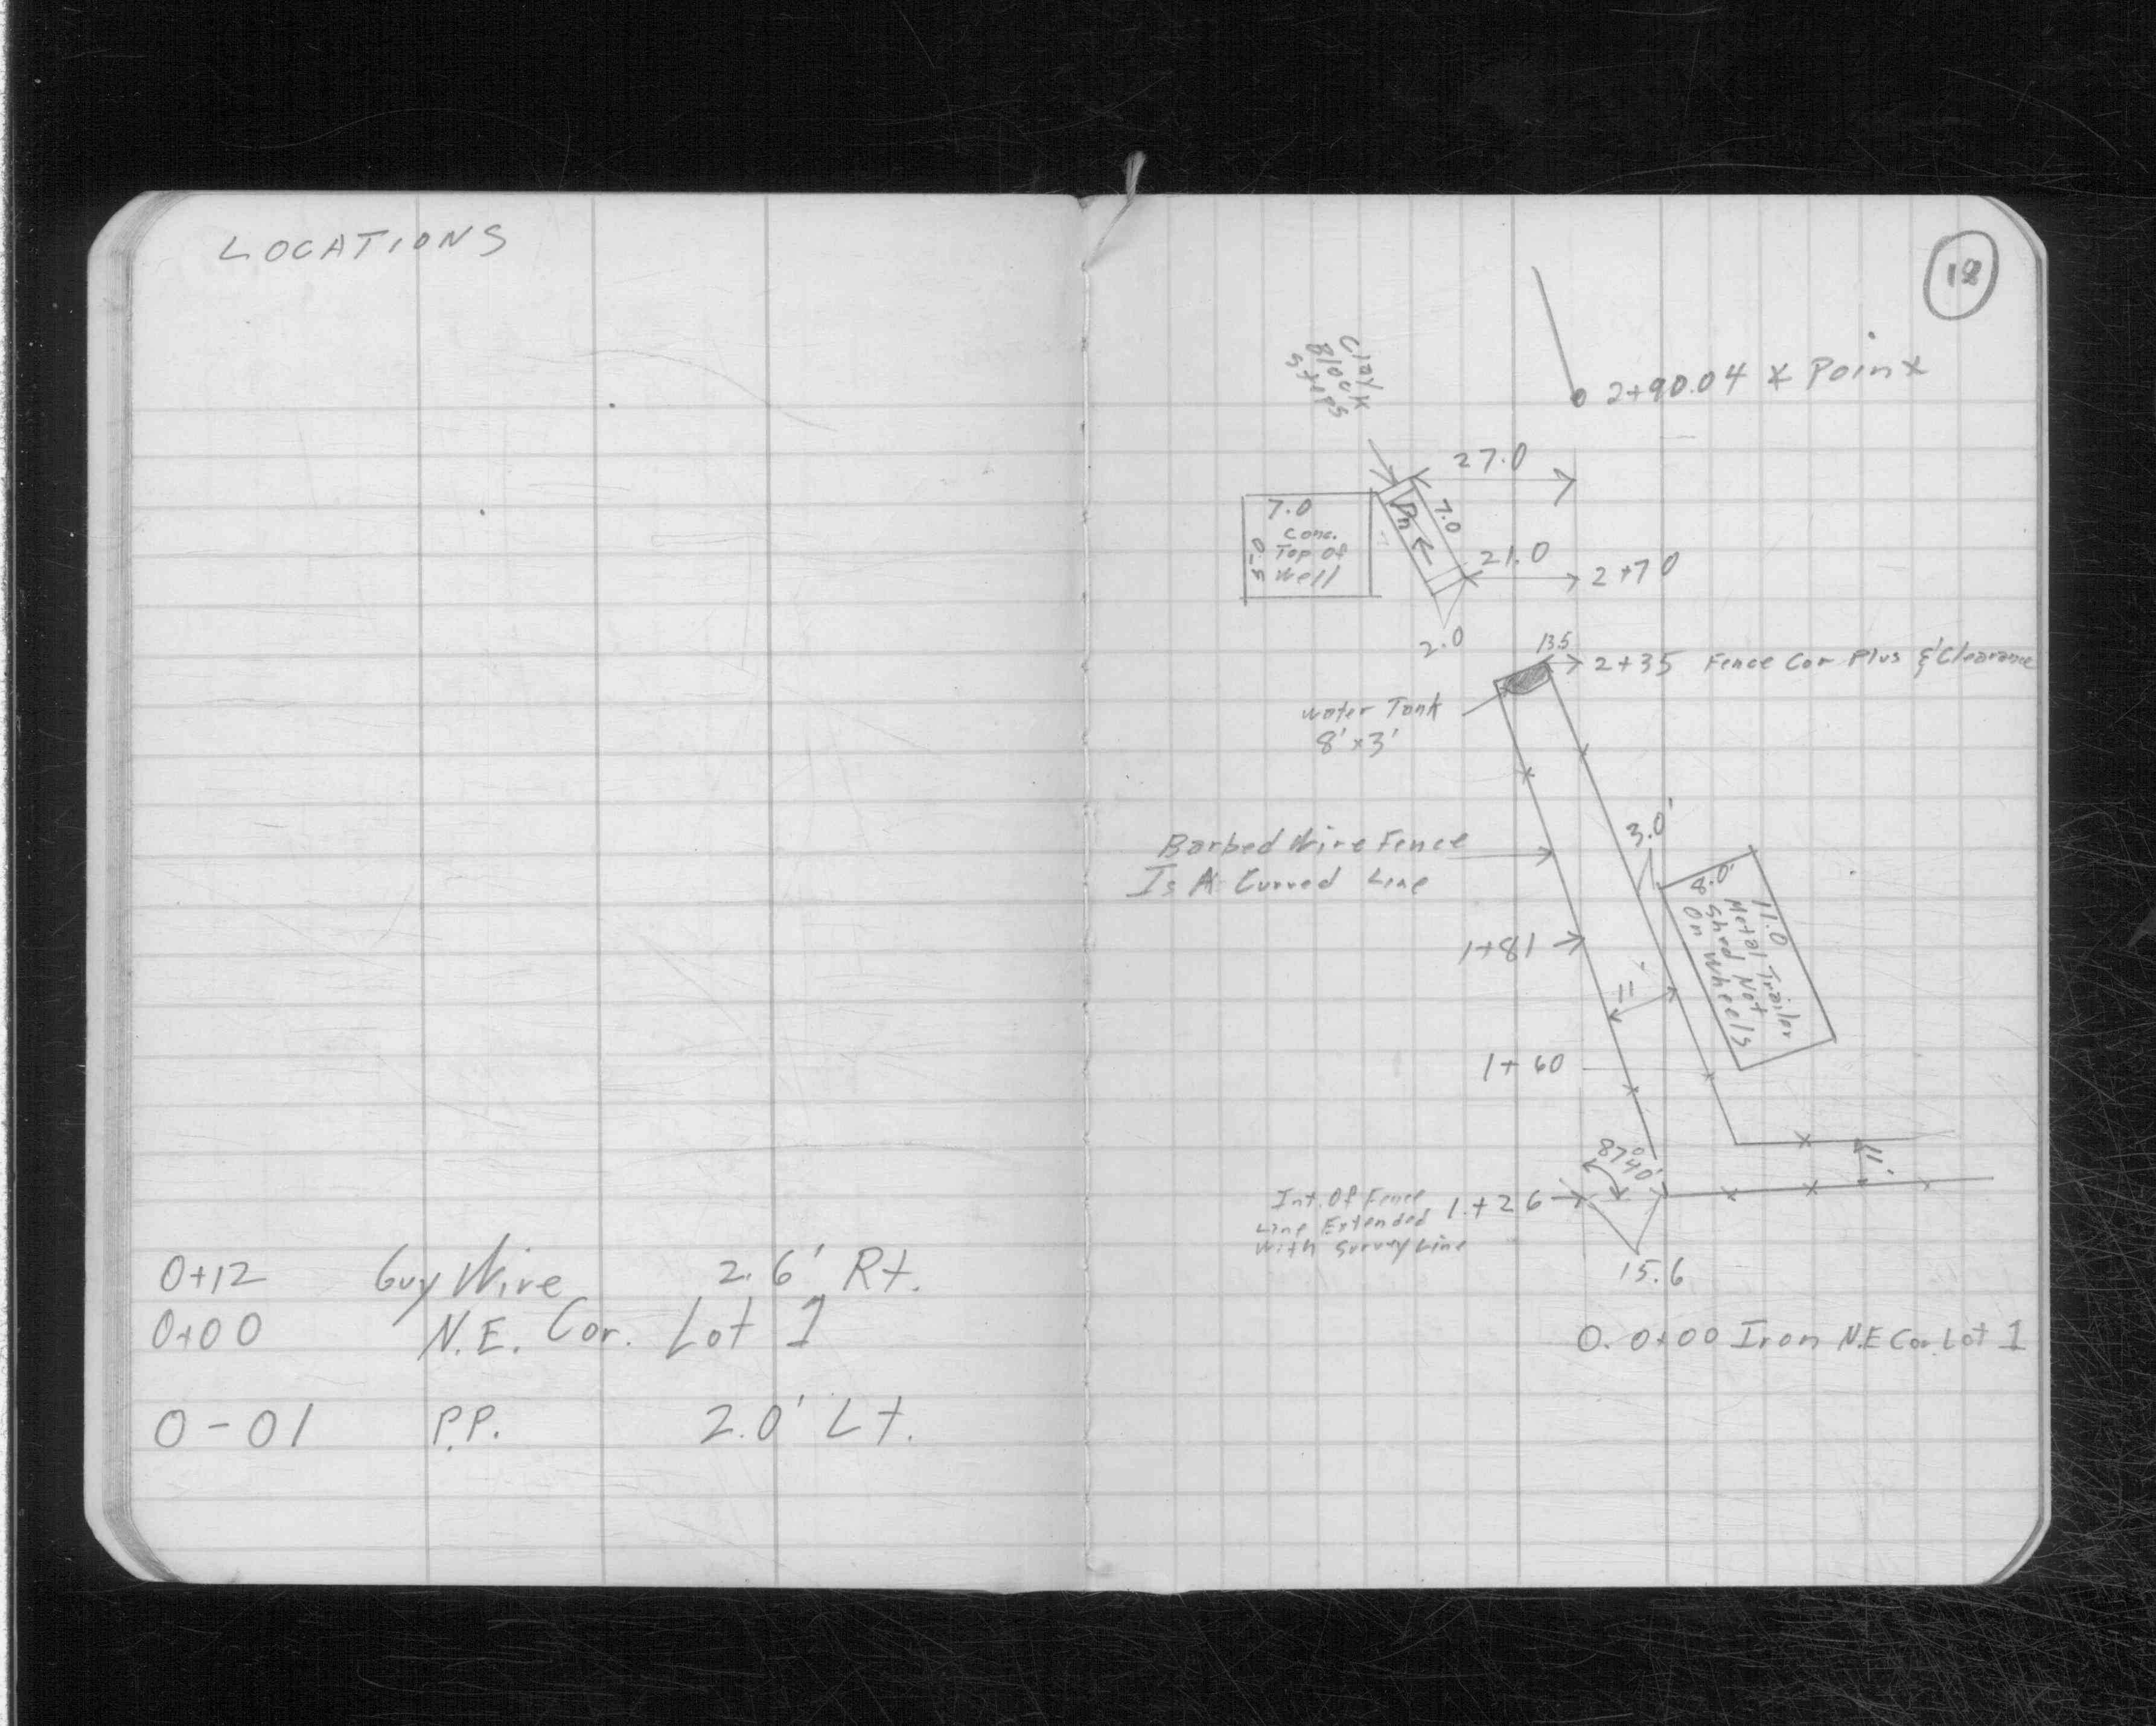 LOCATIONS
0+12 Guy Wire 2.6' Rt.
0+00 N.E. Cor. Lot 1
0-01 P.P. 2.0' Lt.
18
2+90.04 * Point
Block
Steps
27.0
7.0
Conc.
Top Of
Well
5.0
7.0
Dn
21.0
2+70
2.0
13.5
2+35 Fence Cor Plus & Clearance
Water Tank
8'x3'
3.0'
Barbed Wire Fence
Is A Curved Line
8.0'
11.0
Metal Trailer
Shed Not
On Wheels
1+81
11'
1+60
87° 40'
11'
Int. Of Fence
Line Extended
With Survey Line
1+26
15.6
0. 0+00 Iron N.E Cor. Lot 1